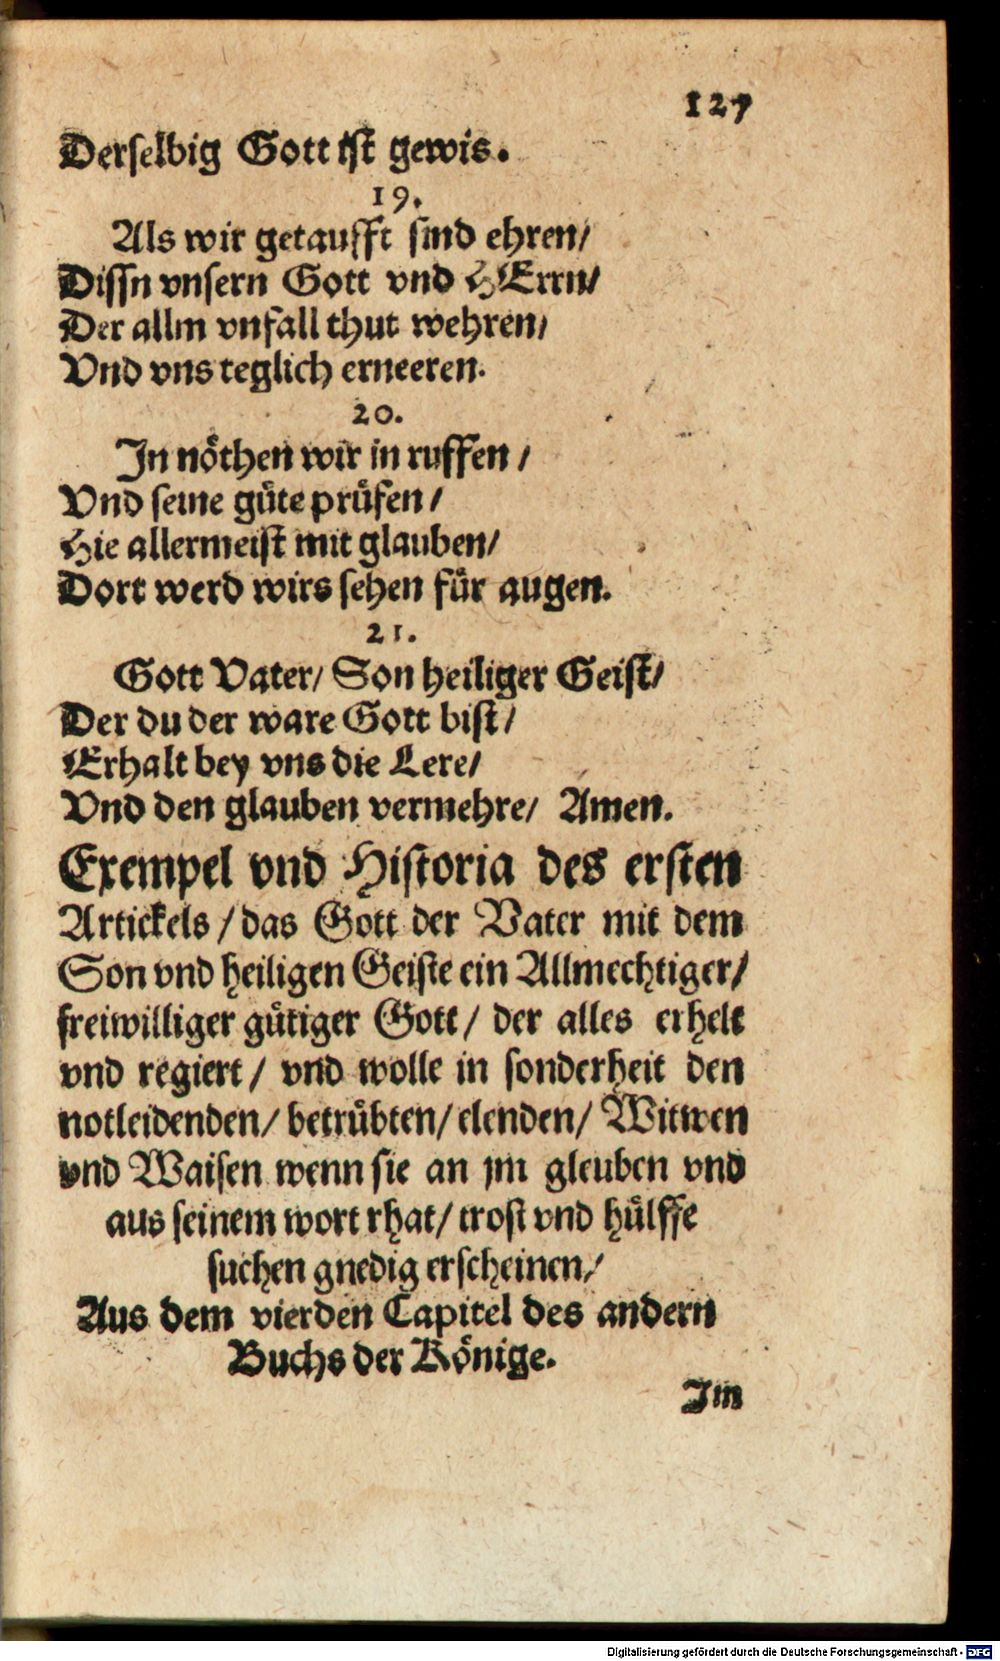 127
Derselbig Gott ist gewis.
19.
Als wir getaufft sind ehren/
Dissn vnsern Gott vnd HErrn/
Der allm vnfall thut wehren/
Vnd vns teglich erneeren.
20.
In nöthen wir in ruffen /
Vnd seine güte prüfen /
Hie allermeist mit glauben/
Dort werd wirs sehen für augen.
21.
Gott Vater/ Son heiliger Geist/
Der du der ware Gott bist/
Erhalt bey vns die Lere/
Vnd den glauben vermehre/ Amen.
Exempel vnd Historia des ersten
Artickels / das Gott der Vater mit dem
Son vnd heiligen Geiste ein Allmechtiger/
freiwilliger gütiger Gott / der alles erhelt
vnd regiert / vnd wolle in sonderheit den
notleidenden/ betrübten/ elenden/ Witwen
vnd Waisen wenn sie an jm gleuben vnd
aus seinem wort rhat/ trost vnd hülffe
suchen gnedig erscheinen/
Aus dem vierden Capitel des andern
Buchs der Könige.
Im
Digitalisierung gefördert durch die Deutsche Forschungsgemeinschaft - DFG